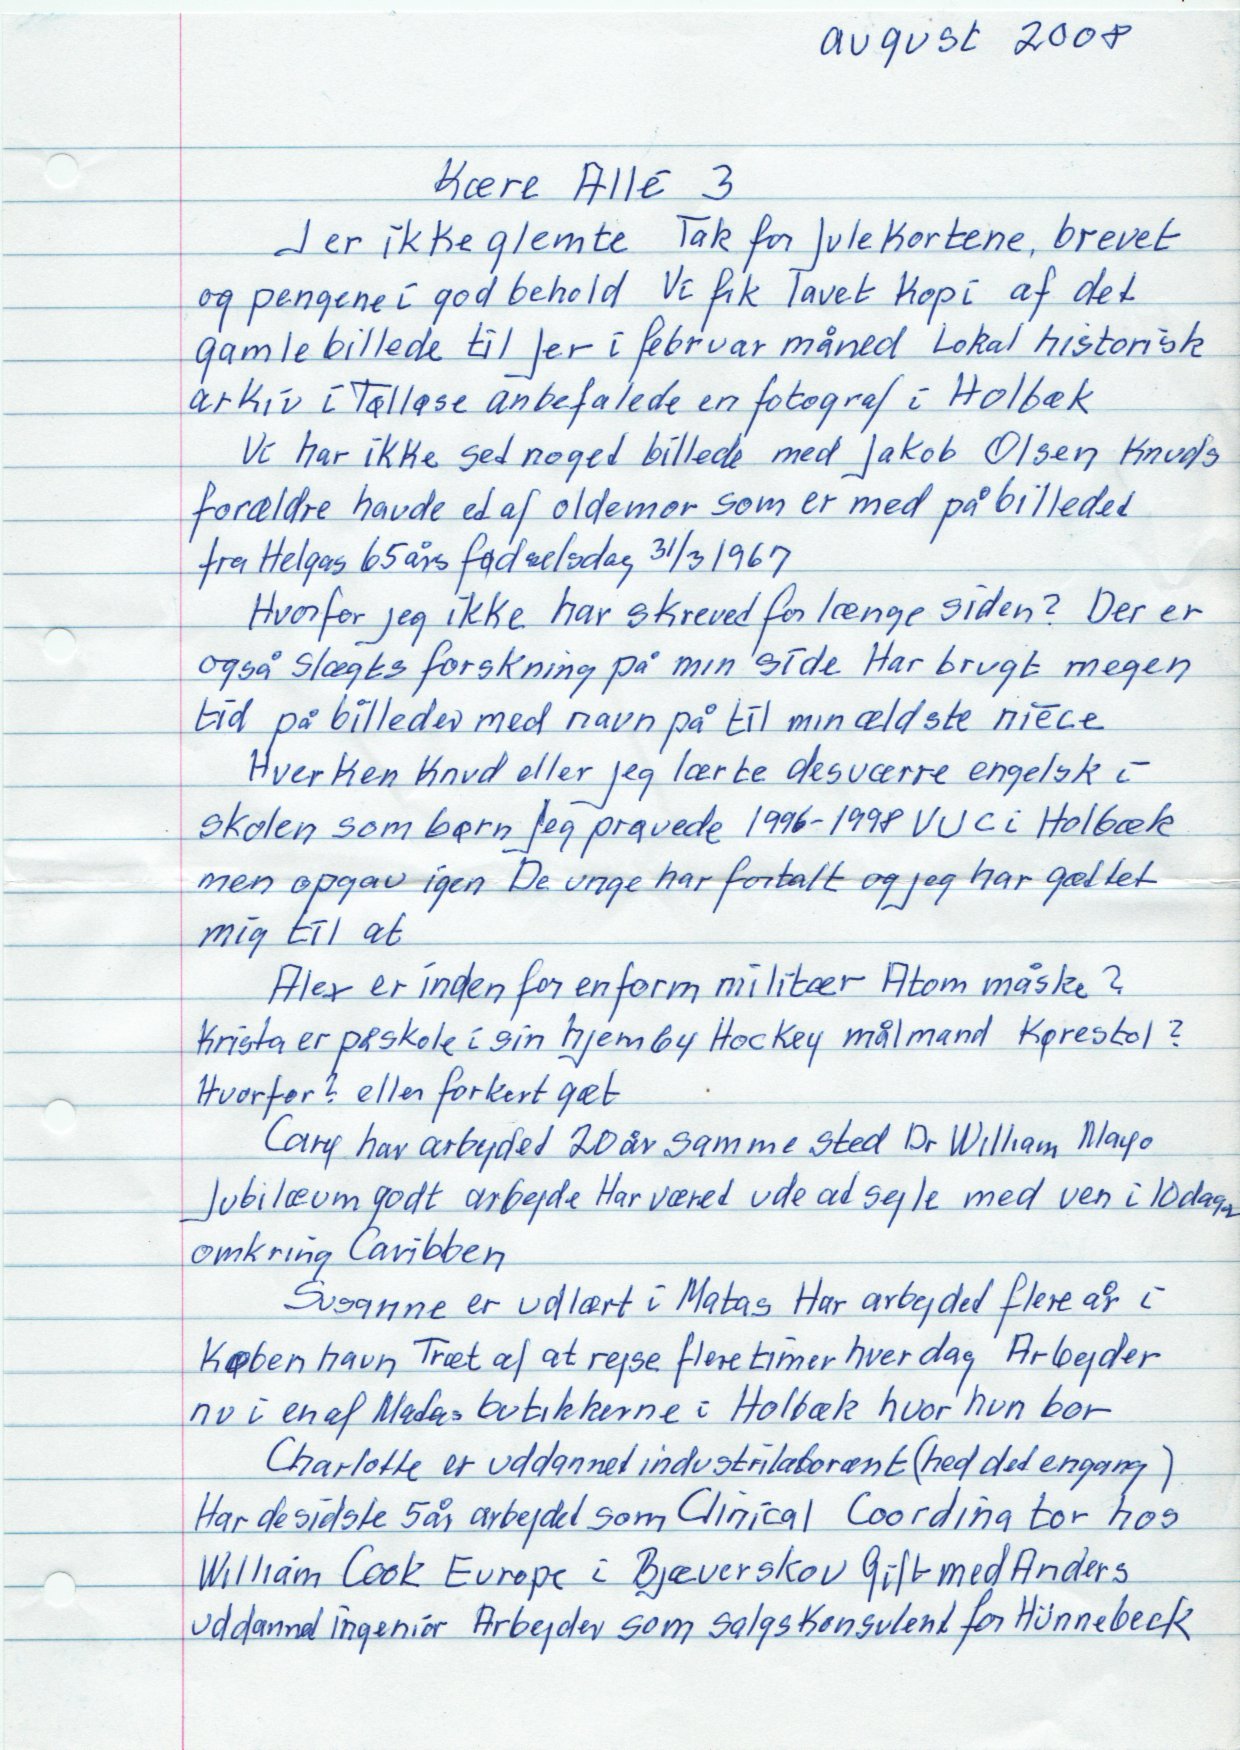 august 2008
Kære Alle 3
I er ikke glemte Tak for Julekortene, brevet
og pengene i god behold Vi fik lavet Kopi af det
gamle billede til Jer i februar måned Lokal historisk
arkiv i Tølløse anbefalede en fotograf i Holbæk
Vi har ikke set noget billede med Jakob Olsen Knuds
forældre havde et af oldemor som er med på billedet
fra Helgas 65 års fødselsdag 31/3 1967
Hvorfor jeg ikke har skrevet for længe siden? Der er
også Slægts forskning på min side Har brugt megen
tid på billeder med navn på til min ældste niece
Hverken Knud eller jeg lærte desværre engelsk i
skolen som børn Jeg prøvede 1996-1998 VUC i Holbæk
men opgav igen De unge har fortalt og jeg har gættet
mig til at
Alex er inden for en form militær Atom måske?
Krista er på skole i sin hjemby Hockey målmand Kørestol?
Hvorfor? eller forkert gæt
Cary har arbejdet 20 år samme sted Dr William Mayo
Jubilæum godt arbejde Har været ude at sejle med ven i 10 dage
omkring Caribben
Susanne er udlært i Matas Har arbejdet flere år i
København Træt af at rejse flere timer hver dag Arbejder
nu i en af Matas butikkerne i Holbæk hvor hun bor
Charlotte er uddannet industrilaborant (hed det engang)
Har de sidste 5 år arbejdet som Clinical Coordinator hos
William Cook Europe i Bjæverskov Gift med Anders
uddannet ingeniør Arbejder som salgskonsulent for Hünnebeck